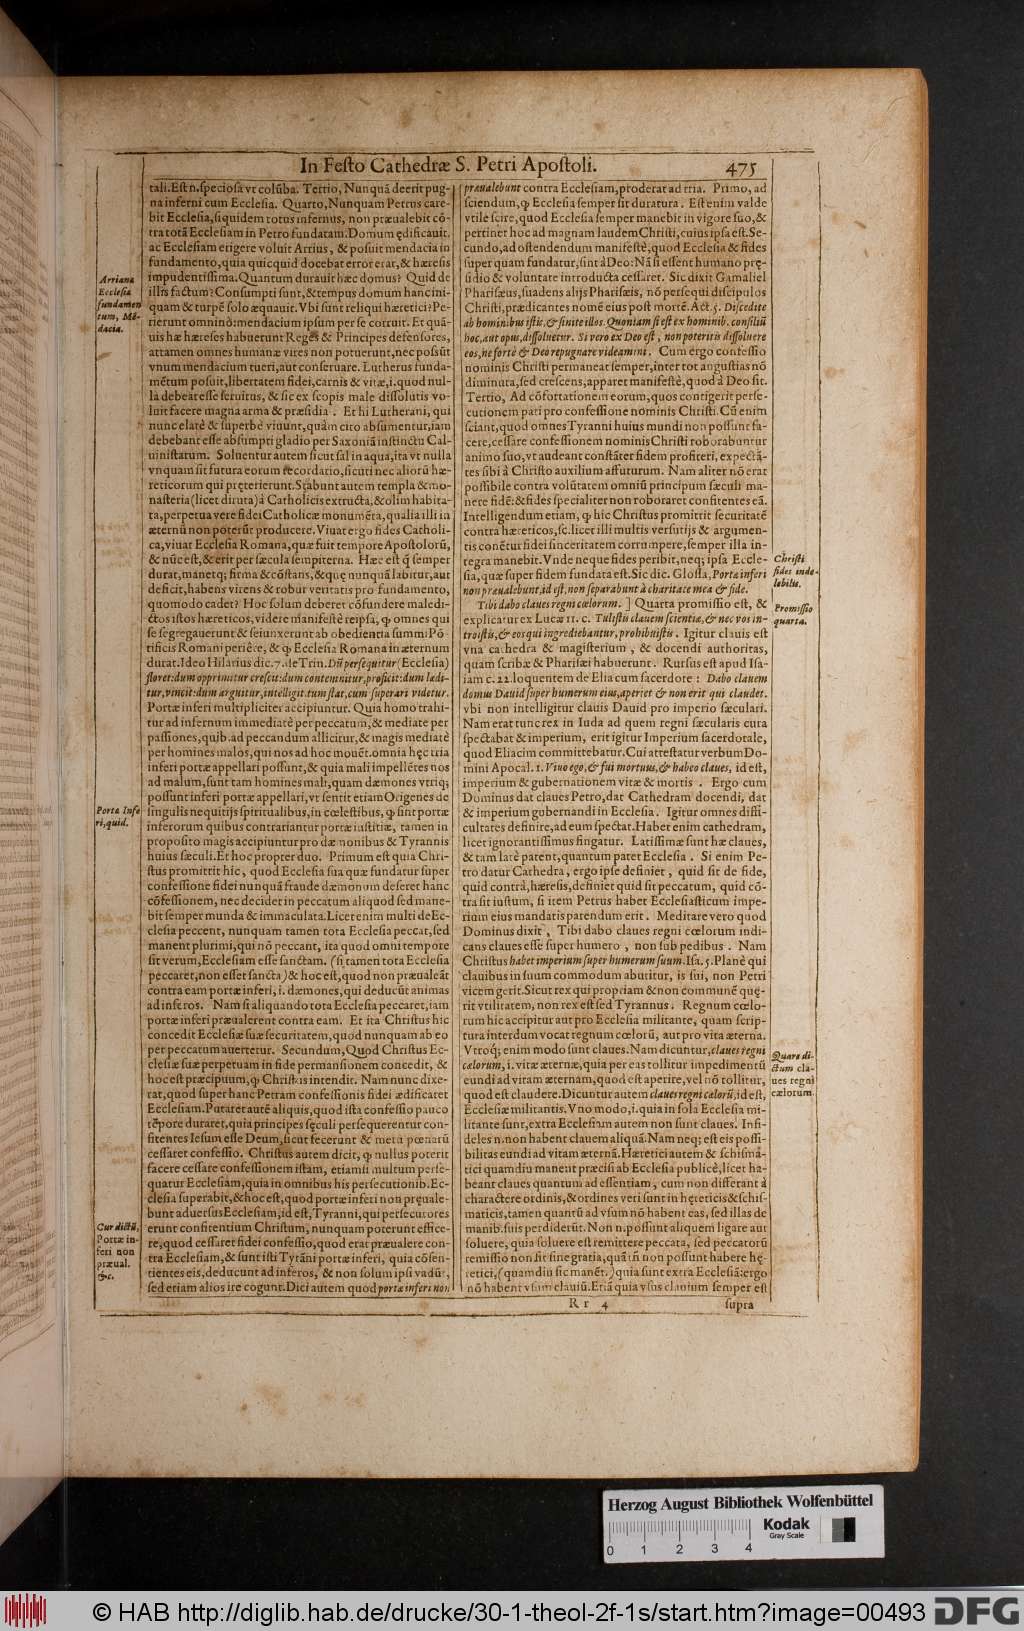 In Festo Cathedræ S. Petri Apostoli. 475
tali. Est n. speciosa vt colũba. Tertio, Nunquã deerit pug-
na inferni cum Ecclesia. Quarto, Nunquam Petrus care-
bit Ecclesia, siquidem totus infernus, non præualebit cõ-
tra totã Ecclesiam in Petro fundatam. Domum ędificauit,
ac Ecclesiam erigere voluit Arrius, & posuit mendacia in
fundamento, quia quicquid docebat error erat, & hæresis
impudentissima. Quantum durauit hæc domus? Quid de
illis factum? Consumpti sunt, & tempus domum hanc ini-
quam & turpẽ solo æquauit. Vbi sunt reliqui hæretici? Pe-
rierunt omninò: mendacium ipsum per se corruit. Et quã-
uis hæ hæreses habuerunt Reges & Principes defensores,
attamen omnes humanæ vires non potuerunt, nec possũt
vnum mendacium tueri, aut conseruare. Lutherus funda-
mẽtum posuit, libertatem fidei, carnis & vitæ, i. quod nul-
la debeat esse seruitus, & sic ex scopis male dissolutis vo-
luit facere magna arma & præsidia. Et hi Lutherani, qui
nunc elatè & superbè viuunt, quàm cito absumentur, iam
debebant esse absumpti gladio per Saxoniã instinctu Cal-
uinistarum. Soluentur autem sicut sal in aqua, ita vt nulla
vnquam sit futura eorum recordatio, sicuti nec aliorũ hæ-
reticorum qui pręterierunt. Stabunt autem templa & mo-
nasteria (licet diruta) à Catholicis extructa, & olim habita-
ta, perpetua vere fidei Catholicæ monumẽta, qualia illi in
æternũ non poterũt producere. Viuat ergo fides Catholi-
ca, viuat Ecclesia Romana, quæ fuit tempore Apostolorũ,
& nũc est, & erit per sæcula sempiterna. Hæc est q̃ semper
durat, manetq; firma & cõstans, & quę nunquã labitur, aut
deficit, habens virens & robur veritatis pro fundamento,
quomodo cadet? Hoc solum deberet cõfundere maledi-
ctos istos hæreticos, videre manifestè reipsa, ꝙ omnes qui
se segregauerunt & seiunxerunt ab obedientia summi Põ-
tificis Romani periêre, & ꝙ Ecclesia Romana in æternum
durat. Ideo Hilarius dic. 7. de Trin. Dũ persequitur (Ecclesia)
floret: dum opprimitur crescit: dum contemnitur, proficit: dum lædi-
tur, vincit: dum arguitur, intelligit. tum stat, cum superari videtur.
Portæ inferi multipliciter accipiuntur. Quia homo trahi-
tur ad infernum immediatè per peccatum, & mediate per
passiones, quib. ad peccandum allicitur, & magis mediatè
per homines malos, qui nos ad hoc mouẽt. omnia hęc tria
inferi portæ appellari possunt, & quia mali impellẽtes nos
ad malum, sunt tam homines mali, quam dæmones vtriq;
possunt inferi portæ appellari, vt sentit etiam Origenes de
singulis nequitijs spiritualibus, in cœlestibus, ꝙ sint portæ
inferorum quibus contrariantur portæ iustitiæ, tamen in
proposito magis accipiuntur pro dæmonibus & Tyrannis
huius sæculi. Et hoc propter duo. Primum est quia Chri-
stus promittit hic, quod Ecclesia sua quæ fundatur super
confessione fidei nunquã fraude dæmonum deseret hanc
cõfessionem, nec decidet in peccatum aliquod sed mane-
bit semper munda & immaculata. Licet enim multi de Ec-
clesia peccent, nunquam tamen tota Ecclesia peccat, sed
manent plurimi, qui nõ peccant, ita quod omni tempore
sit verum, Ecclesiam esse sanctam. (si tamen tota Ecclesia
peccaret, non esset sancta) & hoc est, quod non præualeãt
contra eam portæ inferi, i. dæmones, qui deducũt animas
ad inferos. Nam si aliquando tota Ecclesia peccaret, iam
portæ inferi præualerent contra eam. Et ita Christus hic
concedit Ecclesiæ suæ securitatem, quod nunquam ab eo
per peccatum auertetur. Secundum, Quod Christus Ec-
clesiæ suæ perpetuam in fide permansionem concedit, &
hoc est præcipuum, ꝙ Christus intendit. Nam nunc dixe-
rat, quod super hanc Petram confessionis fidei ædificaret
Ecclesiam. Putaret autẽ aliquis, quod ista confessio pauco
tẽpore duraret, quia principes sęculi persequerentur con-
fitentes Iesum esse Deum, sicut fecerunt & metu pœnarũ
cessaret confessio. Christus autem dicit, ꝙ nullus poterit
facere cessare confessionem istam, etiamsi multum perse-
quatur Ecclesiam, quia in omnibus his persecutionib. Ec-
clesia superabit, & hoc est, quod portæ inferi non pręuale-
bunt aduersus Ecclesiam, id est, Tyranni, qui persecutores
erunt confitentium Christum, nunquam poterunt effice-
re, quod cessaret fidei confessio, quod erat præualere con-
tra Ecclesiam, & sunt isti Tyrãni portæ inferi, quia cõsen-
tientes eis, deducunt ad inferos, & non solum ipsi vadũt,
sed etiam alios ire cogunt. Dici autem quod portæ inferi non
Arriana
Ecclesia
fundamen
tum, Mẽ-
dacia.
Porta Infe
ri, quid.
Cur dictũ,
Portæ in-
feri non
præual.
&c.
præualebunt contra Ecclesiam, proderat ad tria. Primo, ad
sciendum, ꝙ Ecclesia semper sit duratura. Est enim valde
vtile scire, quod Ecclesia semper manebit in vigore suo, &
pertinet hoc ad magnam laudem Christi, cuius ipsa est. Se-
cundo, ad ostendendum manifestè, quod Ecclesia & fides
super quam fundatur, sint à Deo: Nã si essent humano prę-
sidio & voluntate introducta cessaret. Sic dixit Gamaliel
Pharisæus, suadens alijs Pharisæis, nõ persequi discipulos
Christi, prædicantes nomẽ eius post mortẽ. Act. 5. Discedite
ab hominibus istis, & sinite illos. Quoniam si est ex hominib. consiliũ
hoc, aut opus, dissoluetur. Si vero ex Deo est, non poteritis dissoluere
eos, ne fortè & Deo repugnare videamini. Cum ergo confessio
nominis Christi permaneat semper, inter tot angustias nõ
diminuta, sed crescens, apparet manifestè, quod à Deo sit.
Tertio, Ad cõfortationem eorum, quos contigerit perse-
cutionem pati pro confessione nominis Christi. Cũ enim
sciant, quod omnes Tyranni huius mundi non possint fa-
cere, cessare confessionem nominis Christi roborabuntur
animo suo, vt audeant constãter fidem profiteri, expectã-
tes sibi à Christo auxilium affuturum. Nam aliter nõ erat
possibile contra volũtatem omniũ principum sæculi ma-
nere fidẽ: & fides specialiter non roboraret confitentes eã.
Intelligendum etiam, ꝙ hic Christus promittit securitatẽ
contra hæreticos, sc. licet illi multis versutijs & argumen-
tis conẽtur fidei sinceritatem corrumpere, semper illa in-
tegra manebit. Vnde neque fides peribit, neq; ipsa Eccle-
sia, quæ super fidem fundata est. Sic dic. Glossa, Porta inferi
non præualebunt, id est, non separabunt à charitate mea & fide.
Tibi dabo claues regni cœlorum. ] Quarta promissio est, &
explicatur ex Lucæ 11. c. Tulistis clauem scientiæ, & nec vos in-
troistis, & eos qui ingrediebantur, prohibuistis. Igitur clauis est
vna cathedra & magisterium, & docendi authoritas,
quam scribæ & Pharisæi habuerunt. Rursus est apud Isa-
iam c. 22. loquentem de Elia cum sacerdote: Dabo clauem
domus Dauid super humerum eius, aperiet & non erit qui claudet.
vbi non intelligitur clauis Dauid pro imperio sæculari.
Nam erat tunc rex in Iuda ad quem regni sæcularis cura
spectabat & imperium, erit igitur Imperium sacerdotale,
quod Eliacim committebatur. Cui attestatur verbum Do-
mini Apocal. 1. Viuo ego, & fui mortuus, & habeo claues, id est,
imperium & gubernationem vitæ & mortis. Ergo cum
Dominus dat claues Petro, dat Cathedram docendi, dat
& imperium gubernandi in Ecclesia. Igitur omnes diffi-
cultates definire, ad eum spectat. Habet enim cathedram,
licet ignorantissimus fingatur. Latissimæ sunt hæ claues,
& tam latè patent, quantum patet Ecclesia. Si enim Pe-
tro datur Cathedra, ergo ipse definiet, quid sit de fide,
quid contrà, hæresis, definiet quid sit peccatum, quid cõ-
tra sit iustum, si item Petrus habet Ecclesiasticum impe-
rium eius mandatis parendum erit. Meditare vero quod
Dominus dixit, Tibi dabo claues regni cœlorum indi-
cans claues esse super humero, non sub pedibus. Nam
Christus habet imperium super humerum suum. Isa. 5. Planè qui
clauibus in suum commodum abutitur, is sui, non Petri
vicem gerit. Sicut rex qui propriam & non communẽ quę-
rit vtilitatem, non rex est sed Tyrannus. Regnum cœlo-
rum hic accipitur aut pro Ecclesia militante, quam scrip-
tura interdum vocat regnum cœlorũ, aut pro vita æterna.
Vtroq; enim modo sunt claues. Nam dicuntur, claues regni
cœlorum, i. vitæ æternæ, quia per eas tollitur impedimentũ
eundi ad vitam æternam, quod est aperire, vel nõ tollitur,
quod est claudere. Dicuntur autem claues regni cælorũ, id est,
Ecclesiæ militantis. Vno modo, i. quia in sola Ecclesia mi-
litante sunt, extra Ecclesiam autem non sunt claues. Infi-
deles n. non habent clauem aliquã. Nam neq; est eis possi-
bilitas eundi ad vitam æternã. Hæretici autem & schismã-
tici quamdiu manent præcisi ab Ecclesia publicè, licet ha-
beant claues quantum ad essentiam, cum non differant à
charactere ordinis, & ordines veri sunt in hęreticis & schis-
maticis, tamen quantũ ad vsum nõ habent eas, sed illas de
manib. suis perdiderũt. Non n. possunt aliquem ligare aut
soluere, quia soluere est remittere peccata, sed peccatorũ
remissio non fit sine gratia, quã tñ non possunt habere hę-
retici, (quamdiu sic manẽt.) quia sunt extra Ecclesiã: ergo
nõ habent vsum clauiũ. Etiã quia vsus clauium semper est
Christi
fides inde-
lebilis.
Promissio
quarta.
Quare di-
ctum cla-
ues regni
cælorum.
Rr 4 supra
Herzog August Bibliothek Wolfenbüttel
Kodak
Gray Scale
0 1 2 3 4
© HAB http://diglib.hab.de/drucke/30-1-theol-2f-1s/start.htm?image=00493 DFG